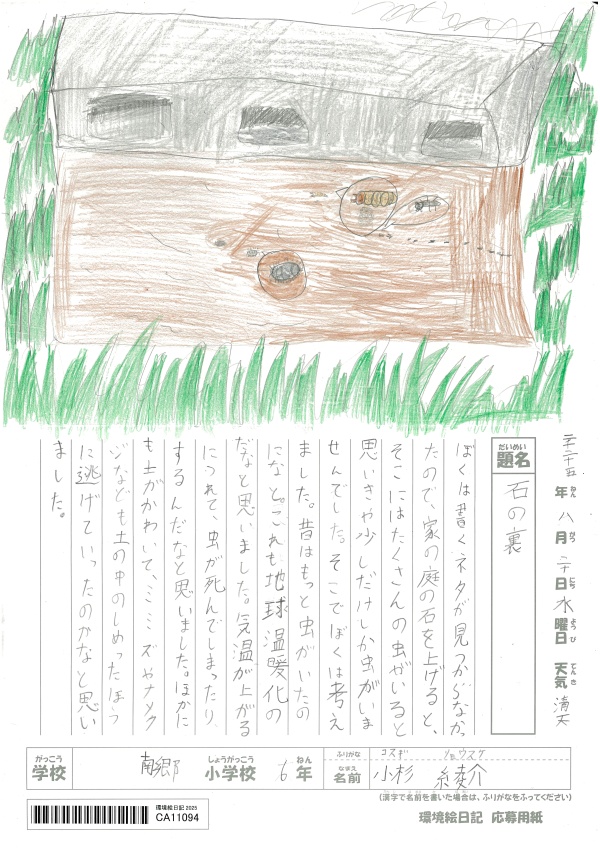 二〇二五年八月二十日水曜日 天気 晴天
だいめい
題名 石の裏
ぼくは書くネタが見つからなかっ
たので、家の庭の石を上げると、
そこにはたくさんの虫がいると
思いきや少しだけしか虫がいま
せんでした。そこでぼくは考え
ました。昔はもっと虫がいたの
になと。これも地球温暖化の
だなと思いました。気温が上がる
につれて、虫が死んでしまったり
するんだなと思いました。ほかに
も土がかわいて、ミミズやナメク
ジなども土の中のしめったほう
に逃げていったのかなと思い
ました。
がっこう しょうがっこう ねん ふりがな コスギ リョウスケ
学校 南郷 小学校 6年 なまえ 名前 小杉 綾介
(漢字で名前を書いた場合は、ふりがなをふってください)
環境絵日記 2025
CA11094
環境絵日記 応募用紙